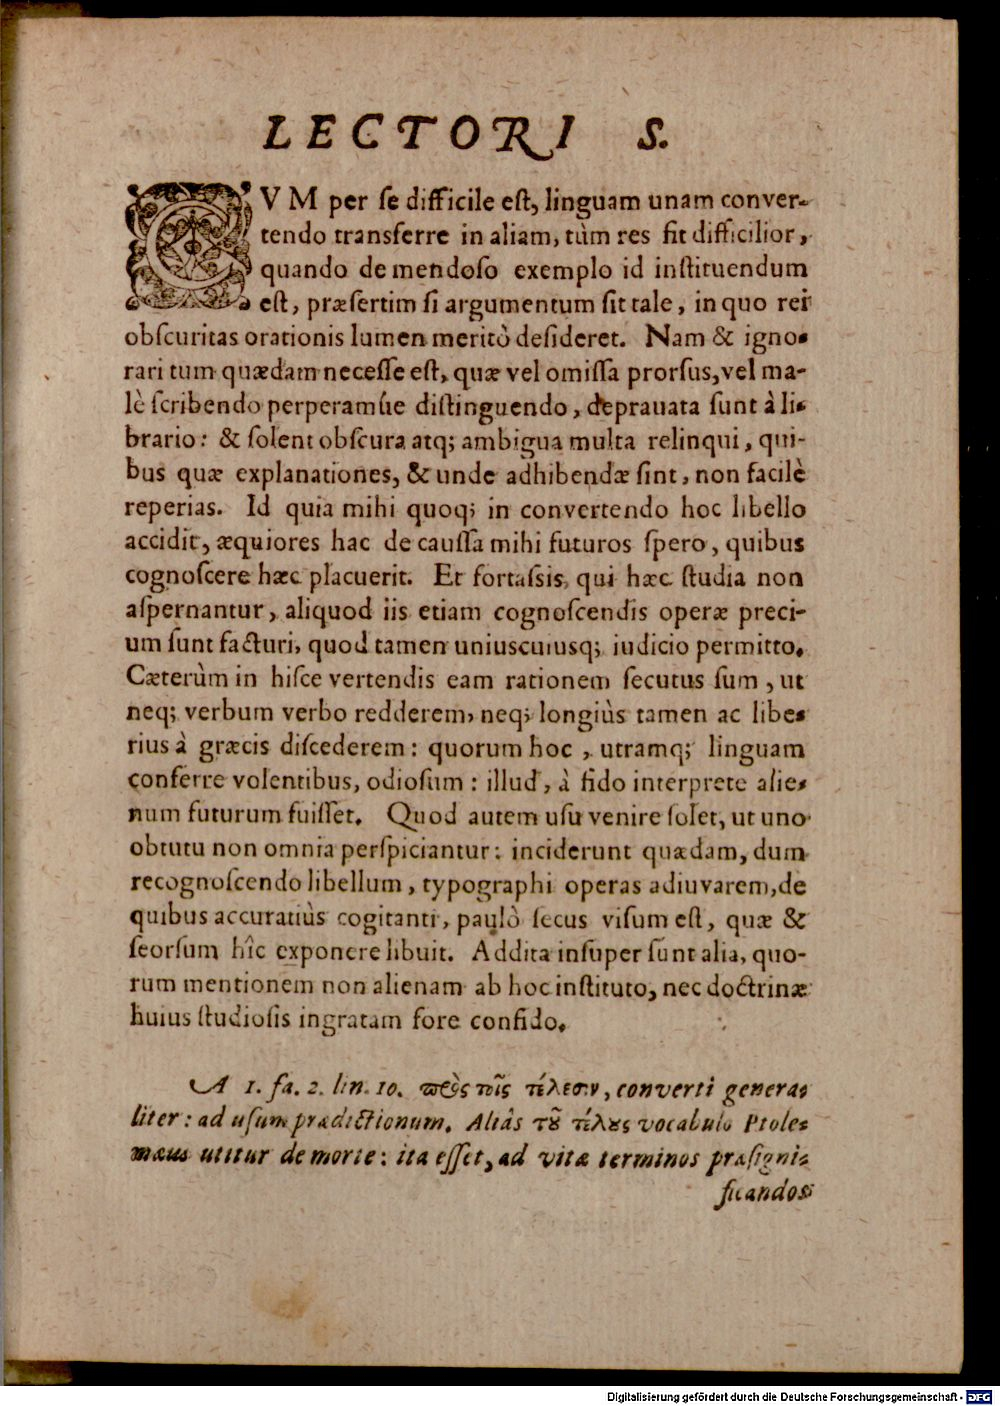 LECTORI S.
CVM per se difficile est, linguam unam conver-
tendo transferre in aliam, tùm res fit difficilior,
quando de mendoso exemplo id instituendum
est, præsertim si argumentum sit tale, in quo rei
obscuritas orationis lumen meritò desideret. Nam & igno-
rari tum quædam necesse est, quæ vel omissa prorsus, vel ma-
lè scribendo perperamúe distinguendo, deprauata sunt à li-
brario: & solent obscura atq; ambigua multa relinqui, qui-
bus quæ explanationes, & unde adhibendæ sint, non facilè
reperias. Id quia mihi quoq; in convertendo hoc libello
accidit, æquiores hac de caussa mihi futuros spero, quibus
cognoscere hæc placuerit. Et fortassis, qui hæc studia non
aspernantur, aliquod iis etiam cognoscendis operæ preci-
um sunt facturi, quod tamen uniuscuiusq; iudicio permitto.
Cæterùm in hisce vertendis eam rationem secutus sum, ut
neq; verbum verbo redderem, neq; longiùs tamen ac libe-
rius à græcis discederem: quorum hoc, utramq; linguam
conferre volentibus, odiosum: illud, à fido interprete alie-
num futurum fuisset. Quod autem usu venire solet, ut uno
obtutu non omnia perspiciantur: inciderunt quædam, dum
recognoscendo libellum, typographi operas adiuvarem, de
quibus accuratiùs cogitanti, paulò secus visum est, quæ &
seorsum hîc exponere libuit. Addita insuper sunt alia, quo-
rum mentionem non alienam ab hoc instituto, nec doctrinæ
huius studiosis ingratam fore confido.
A 1. fa. 2. lin. 10. πρὸς τοῖς τέλεσιν, converti genera-
liter: ad usum prædictionum. Aliàs τοῦ τέλους vocabulo Ptole-
mæus utitur de morte: ita esset, ad vitæ terminos præsigni-
ficandos
Digitalisierung gefördert durch die Deutsche Forschungsgemeinschaft - DFG